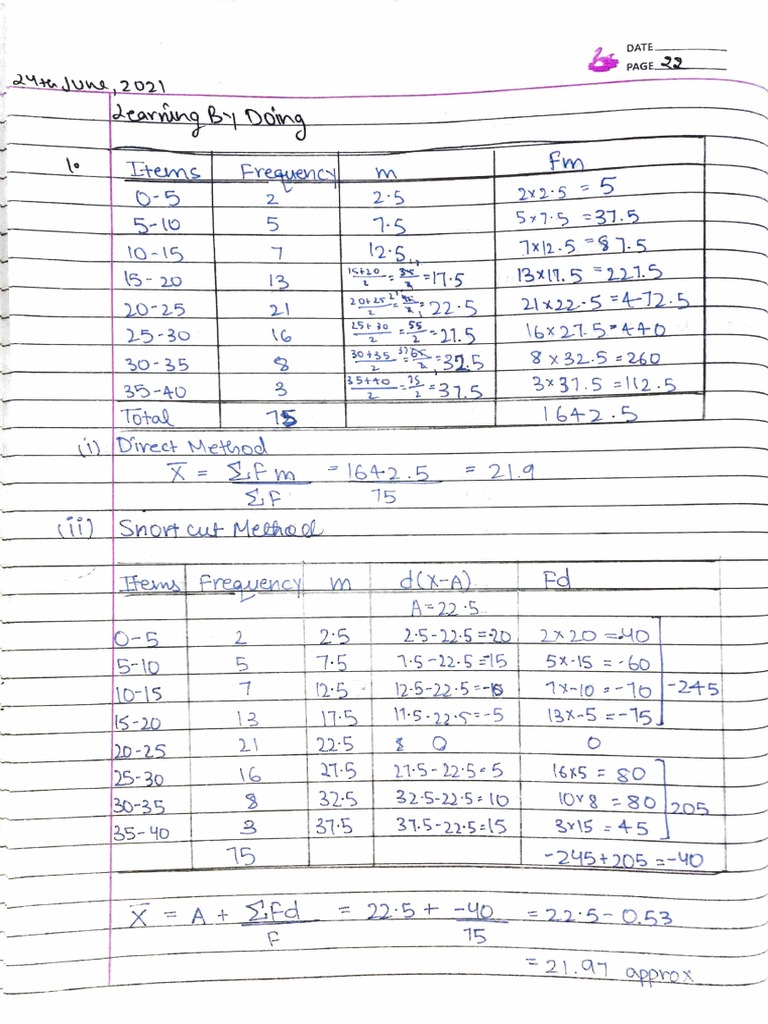 DATE
PAGE 22
24th June, 2021
Learning By Doing
1. Items Frequency m Fm
0-5 2 2.5 2×2.5 = 5
5-10 5 7.5 5×7.5 = 37.5
10-15 7 12.5 7×12.5 = 87.5
15-20 13 15+20/2 = 35/2 = 17.5 13×17.5 = 227.5
20-25 21 20+25/2 = 22.5 21×22.5 = 472.5
25-30 16 25+30/2 = 55/2 = 27.5 16×27.5 = 440
30-35 8 30+35/2 = 32.5 8×32.5 = 260
35-40 3 35+40/2 = 75/2 = 37.5 3×37.5 = 112.5
Total 75 1642.5
(i) Direct Method
X̅ = ΣFm/ΣF = 1642.5/75 = 21.9
(ii) Short cut Method
Items Frequency m d(X-A) Fd
A = 22.5
0-5 2 2.5 2.5-22.5=-20 2×20 = -40
5-10 5 7.5 7.5-22.5=-15 5×-15 = -60
10-15 7 12.5 12.5-22.5=-10 7×-10 = -70 -245
15-20 13 17.5 17.5-22.5=-5 13×-5 = -75
20-25 21 22.5 0 0
25-30 16 27.5 27.5-22.5=5 16×5 = 80
30-35 8 32.5 32.5-22.5=10 10×8 = 80 205
35-40 3 37.5 37.5-22.5=15 3×15 = 45
75 -245+205 = -40
X̅ = A + ΣFd/F = 22.5 + -40/75 = 22.5 - 0.53
= 21.97 approx